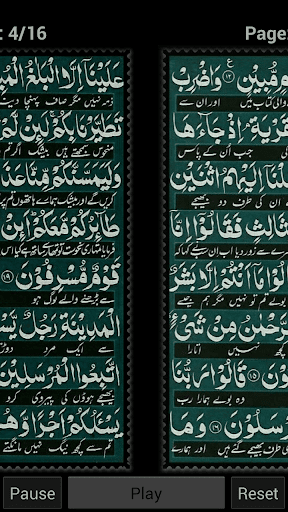 : 4/16
Page:
مُّبِيْنٍ ۱۲ وَاضْرِبْ
والی کتاب میں اور ان سے
قَرْيَةِ اِذْ جَآءَهَا
جب اُن کے پاس
نَآ اِلَيْهِمُ اثْنَيْنِ
ان کی طرف دو بھیجے
ثَالِثٍ فَقَالُوْٓا اِنَّآ
سے زور دیا اب
لُوْا مَآ اَنْتُمْ اِلَّا بَشَرٌ
بھیجے گئے ہیں بولے تم تو نہیں مگر ہم
رَّحْمٰنُ مِنْ شَىْءٍ
کچھ نہیں اتارا
نَ ۱۵ قَالُوْا رَبُّنَا
وہ بولے ہمارا رب
رْسَلُوْنَ ۱۶ وَمَا
کی طرف بھیجے گئے ہیں اور ہمارے
عَلَيْنَآ اِلَّا الْبَلٰغُ الْمُ
ذمہ نہیں مگر صاف پہنچا دینا
تَطَيَّرْنَا بِكُمْ لَئِنْ لَّمْ
منحوس سمجھتے ہیں بیشک اگر تم
وَلَيَمَسَّنَّكُمْ مِّنَّا عَذَ
کریں گے اور بیشک ہمارے ہاتھوں تم پر
طَآئِرُكُمْ مَّعَكُمْ اَئِنْ
فرمایا تمہاری نحوست تو تمہارے ساتھ ہے کیا اس
قَوْمٌ مُّسْرِفُوْنَ ۱۹
سے بڑھنے والے لوگ ہو
الْمَدِيْنَةِ رَجُلٌ يَّسْ
سے ایک مرد دوڑ
اتَّبِعُوا الْمُرْسَلِيْنَ
بھیجے ہوؤں کی پیروی کرو
يَسْـَٔلُكُمْ اَجْرًا وَّهُ
تم سے کچھ نیگ نہیں مانگتے
Pause
Play
Reset